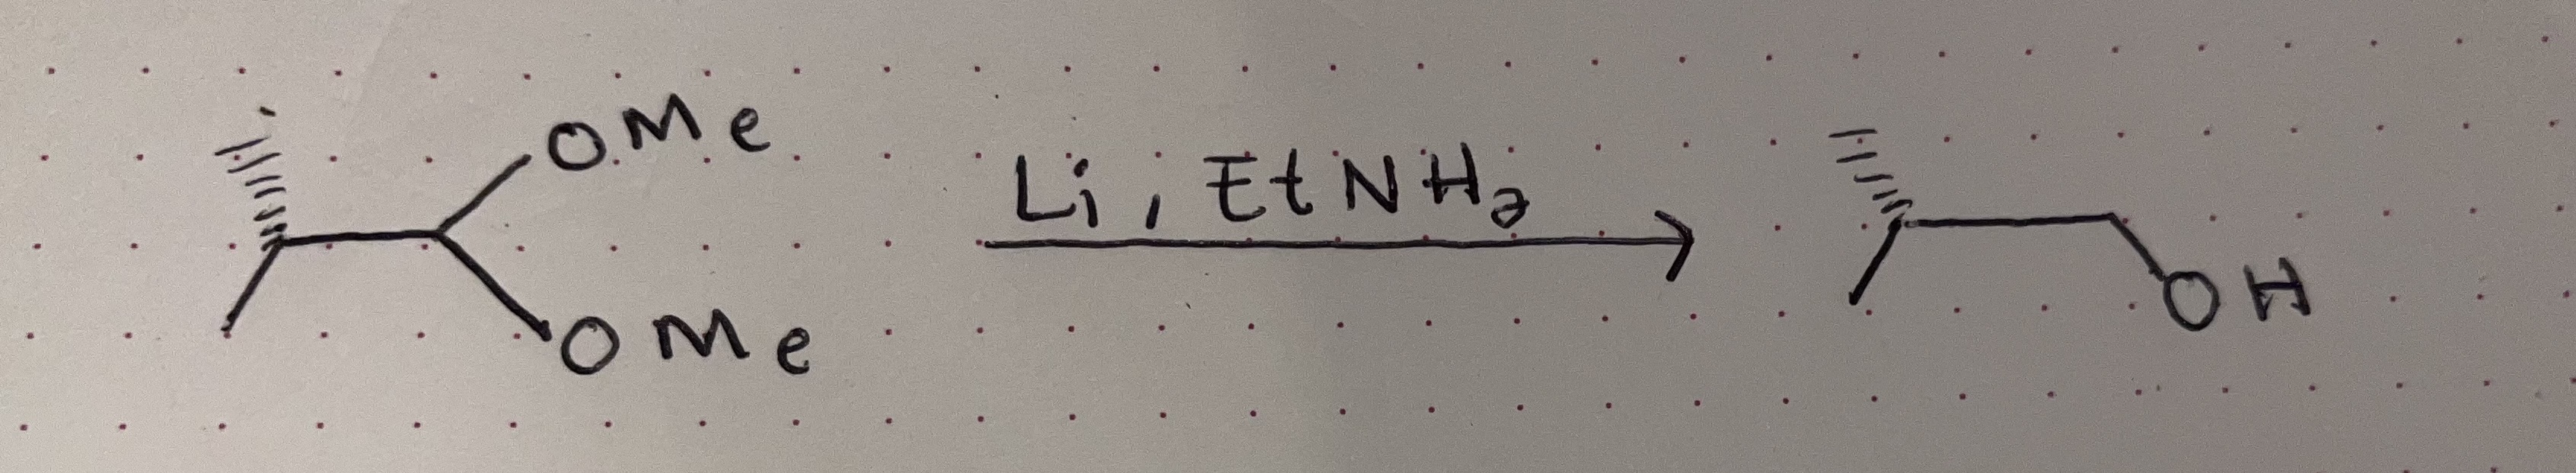 OMe
Li, EtNH₂
OMe
OH